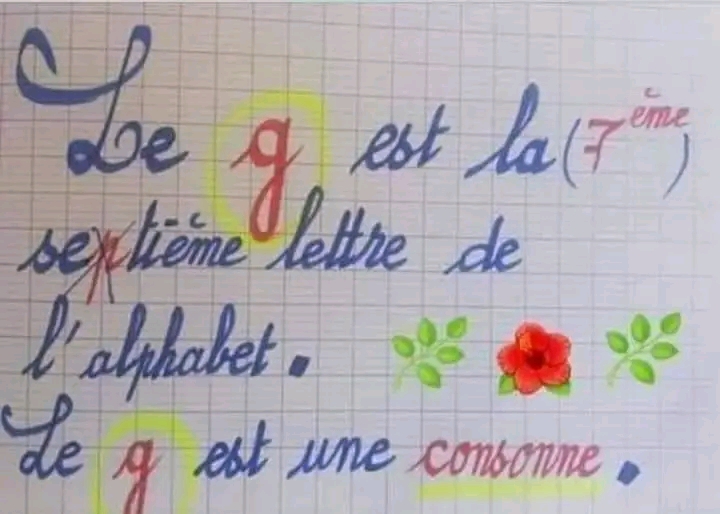 Le g est la (7ème)
septième lettre de
l'alphabet.
Le g est une consonne.